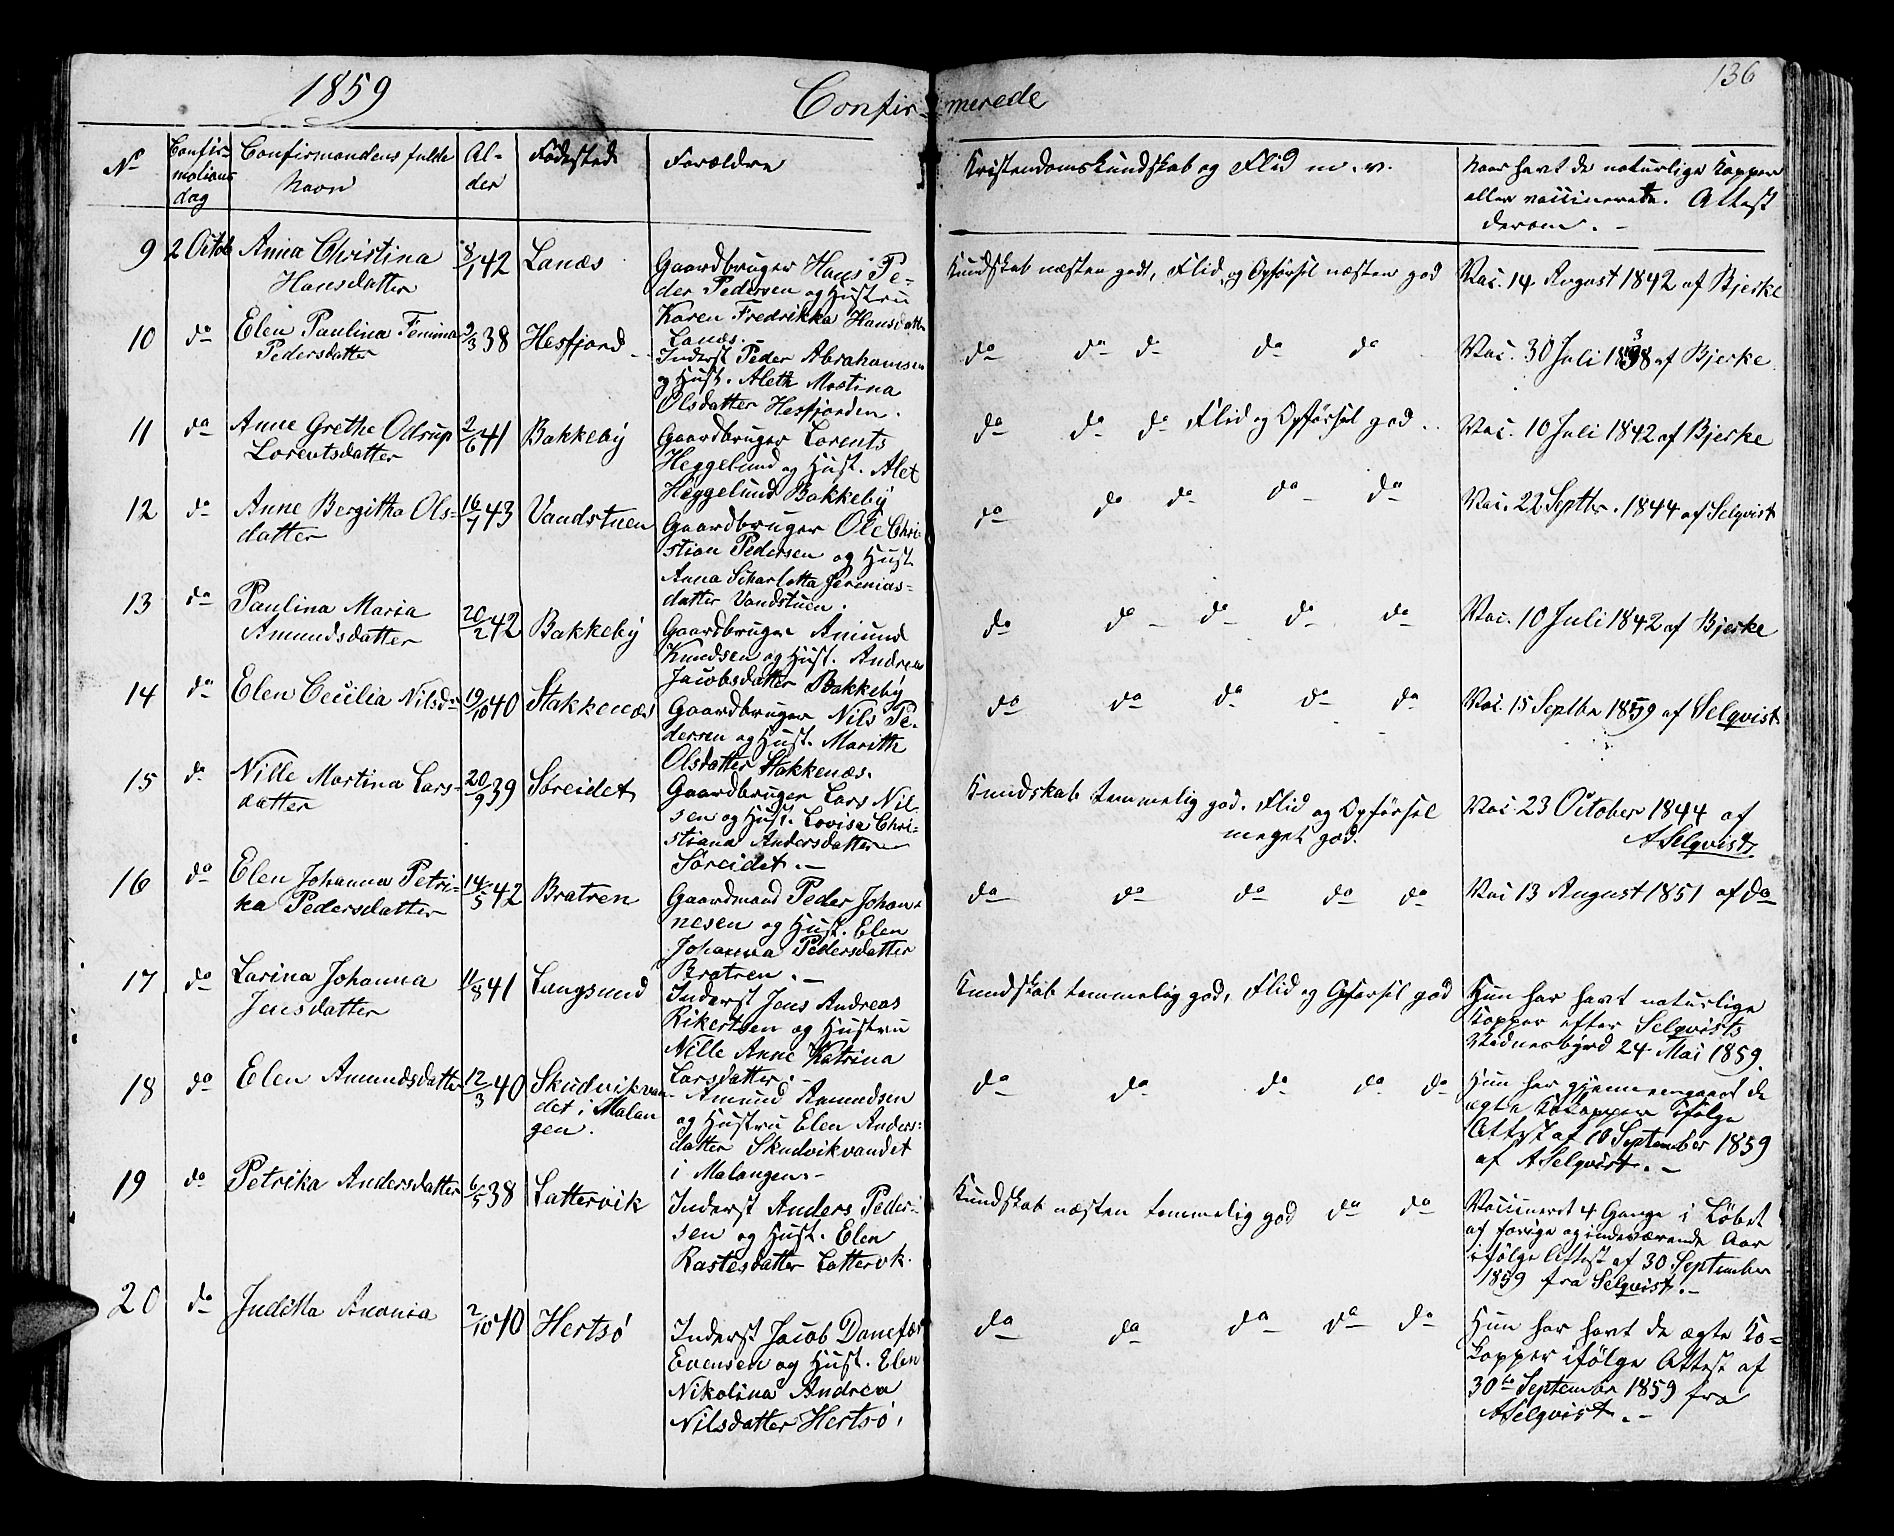 136
1859 Confirmerede
No Confirmationsdag Confirmandens fulde Navn Alder Fødested Forældre Kristendomskundskab og Flid m. v. Naar havt de naturlige Kopper eller vaccineret. Attest derom. -
9 2 Octob Anna Christina Hansdatter 8/1 42 Lanæs Gaardbruger Hans Peder Pedersen og Hustru Karen Fredrikka Hansdatter Lanæs. - Kundskab næsten godt, Flid og Opførsel næsten god Vac. 14 August 1842 af Bjerke
10 do Elen Paulina Femima Pedersdatter 9/3 38 Hesfjord Inderst Peder Abrahamsen og Hust. Aleth Martina Olsdatter Hesfjorden. do do do do do Vac. 30 Juli 1838 af Bjerke
11 do Anne Grethe Odrup Lorentsdatter 2/6 41 Bakkeby Gaardbruger Lorents Heggelund og Hust. Alet Heggelund Bakkeby do do do Flid og Opførsel god Vac. 10 Juli 1842 af Bjerke
12 do Anne Bergitha Olsdatter 16/7 43 Vandstuen Gaardbruger Ole Christian Pedersen og Hust. Anna Scharlotta Jeremiasdatter Vandstuen. do do do do do Vac. 22 Septbr. 1844 af Selqvist
13 do Paulina Maria Amundsdatter 20/2 42 Bakkeby Gaardbruger Amund Knudsen og Hust. Andrea Jacobsdatter Bakkeby do do do do do Vac. 10 Juli 1842 af Bjerke
14 do Elen Cecilia Nilsdr 19/10 40 Stakkenæs Gaardbruger Nils Pedersen og Hust. Marith Olsdatter Stakkenæs. do do do do do Vac. 15 Septbr 1859 af Selqvist
15 do Nille Martina Larsdatter 20/9 39 Søreidet Gaardbruger Lars Nilsen og Hust. Lovisa Christiana Andersdatter Søreidet. - Kundskab temmelig god. Flid og Opførsel meget god. Vac. 23 October 1844 af A Selqvist
16 do Elen Johanna Petrika Pedersdatter 14/5 42 Bratren Gaardmand Peder Johannesen og Hust. Elen Johanna Pedersdatter Bratren. - do do do do do Vac 13 August 1851 af do
17 do Larina Johanna Jensdatter 11/8 41 Langsund Inderst Jens Andreas Rikertsen og Hustru Nille Anne Katrina Larsdatter. - Kundskab temmelig god, Flid og Opførsel god Hun har havt naturlige Kopper efter Selqvists Vidnesbyrd 24 Mai 1859.
18 do Elen Amundsdatter 12/3 40 Skudvikvandet i Malangen. Amund Amundsen og Hustru Elen Andersdatter Skudvikvandet i Malangen - do do do do do Hun har gjennemgaaet de ægte Kokopper ifølge Attest af 10 September 1859 af A Selqvist. -
19 do Petrika Andersdatter 6/5 38 Lattervik Inderst Anders Pedersen og Hust. Elen Rastesdatter Lattervk. Kundskab næsten temmelig god do do Vaccineret 4 Gange i Løbet af forige og indeværende Aar ifølge Attest af 30 September 1859 fra Selqvist. -
20 do Juditta Anonia 2/10 40 Hertsø Inderst Jacob Danefær Evensen og Hust. Elen Nikolina Andrea Nilsdatter Hertsø. do do do do do Hun har havt de ægte Kokopper ifølge Attest af 30te September 1859 fra A Selqvist. -